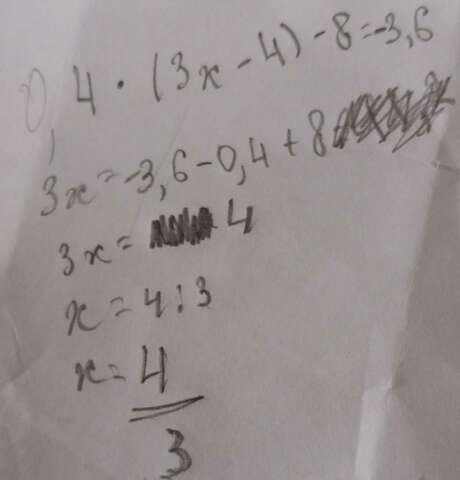 0,4 · (3x - 4) - 8 = -3,6
3x = -3,6 - 0,4 + 8
3x = 4
x = 4 : 3
x = 4
3